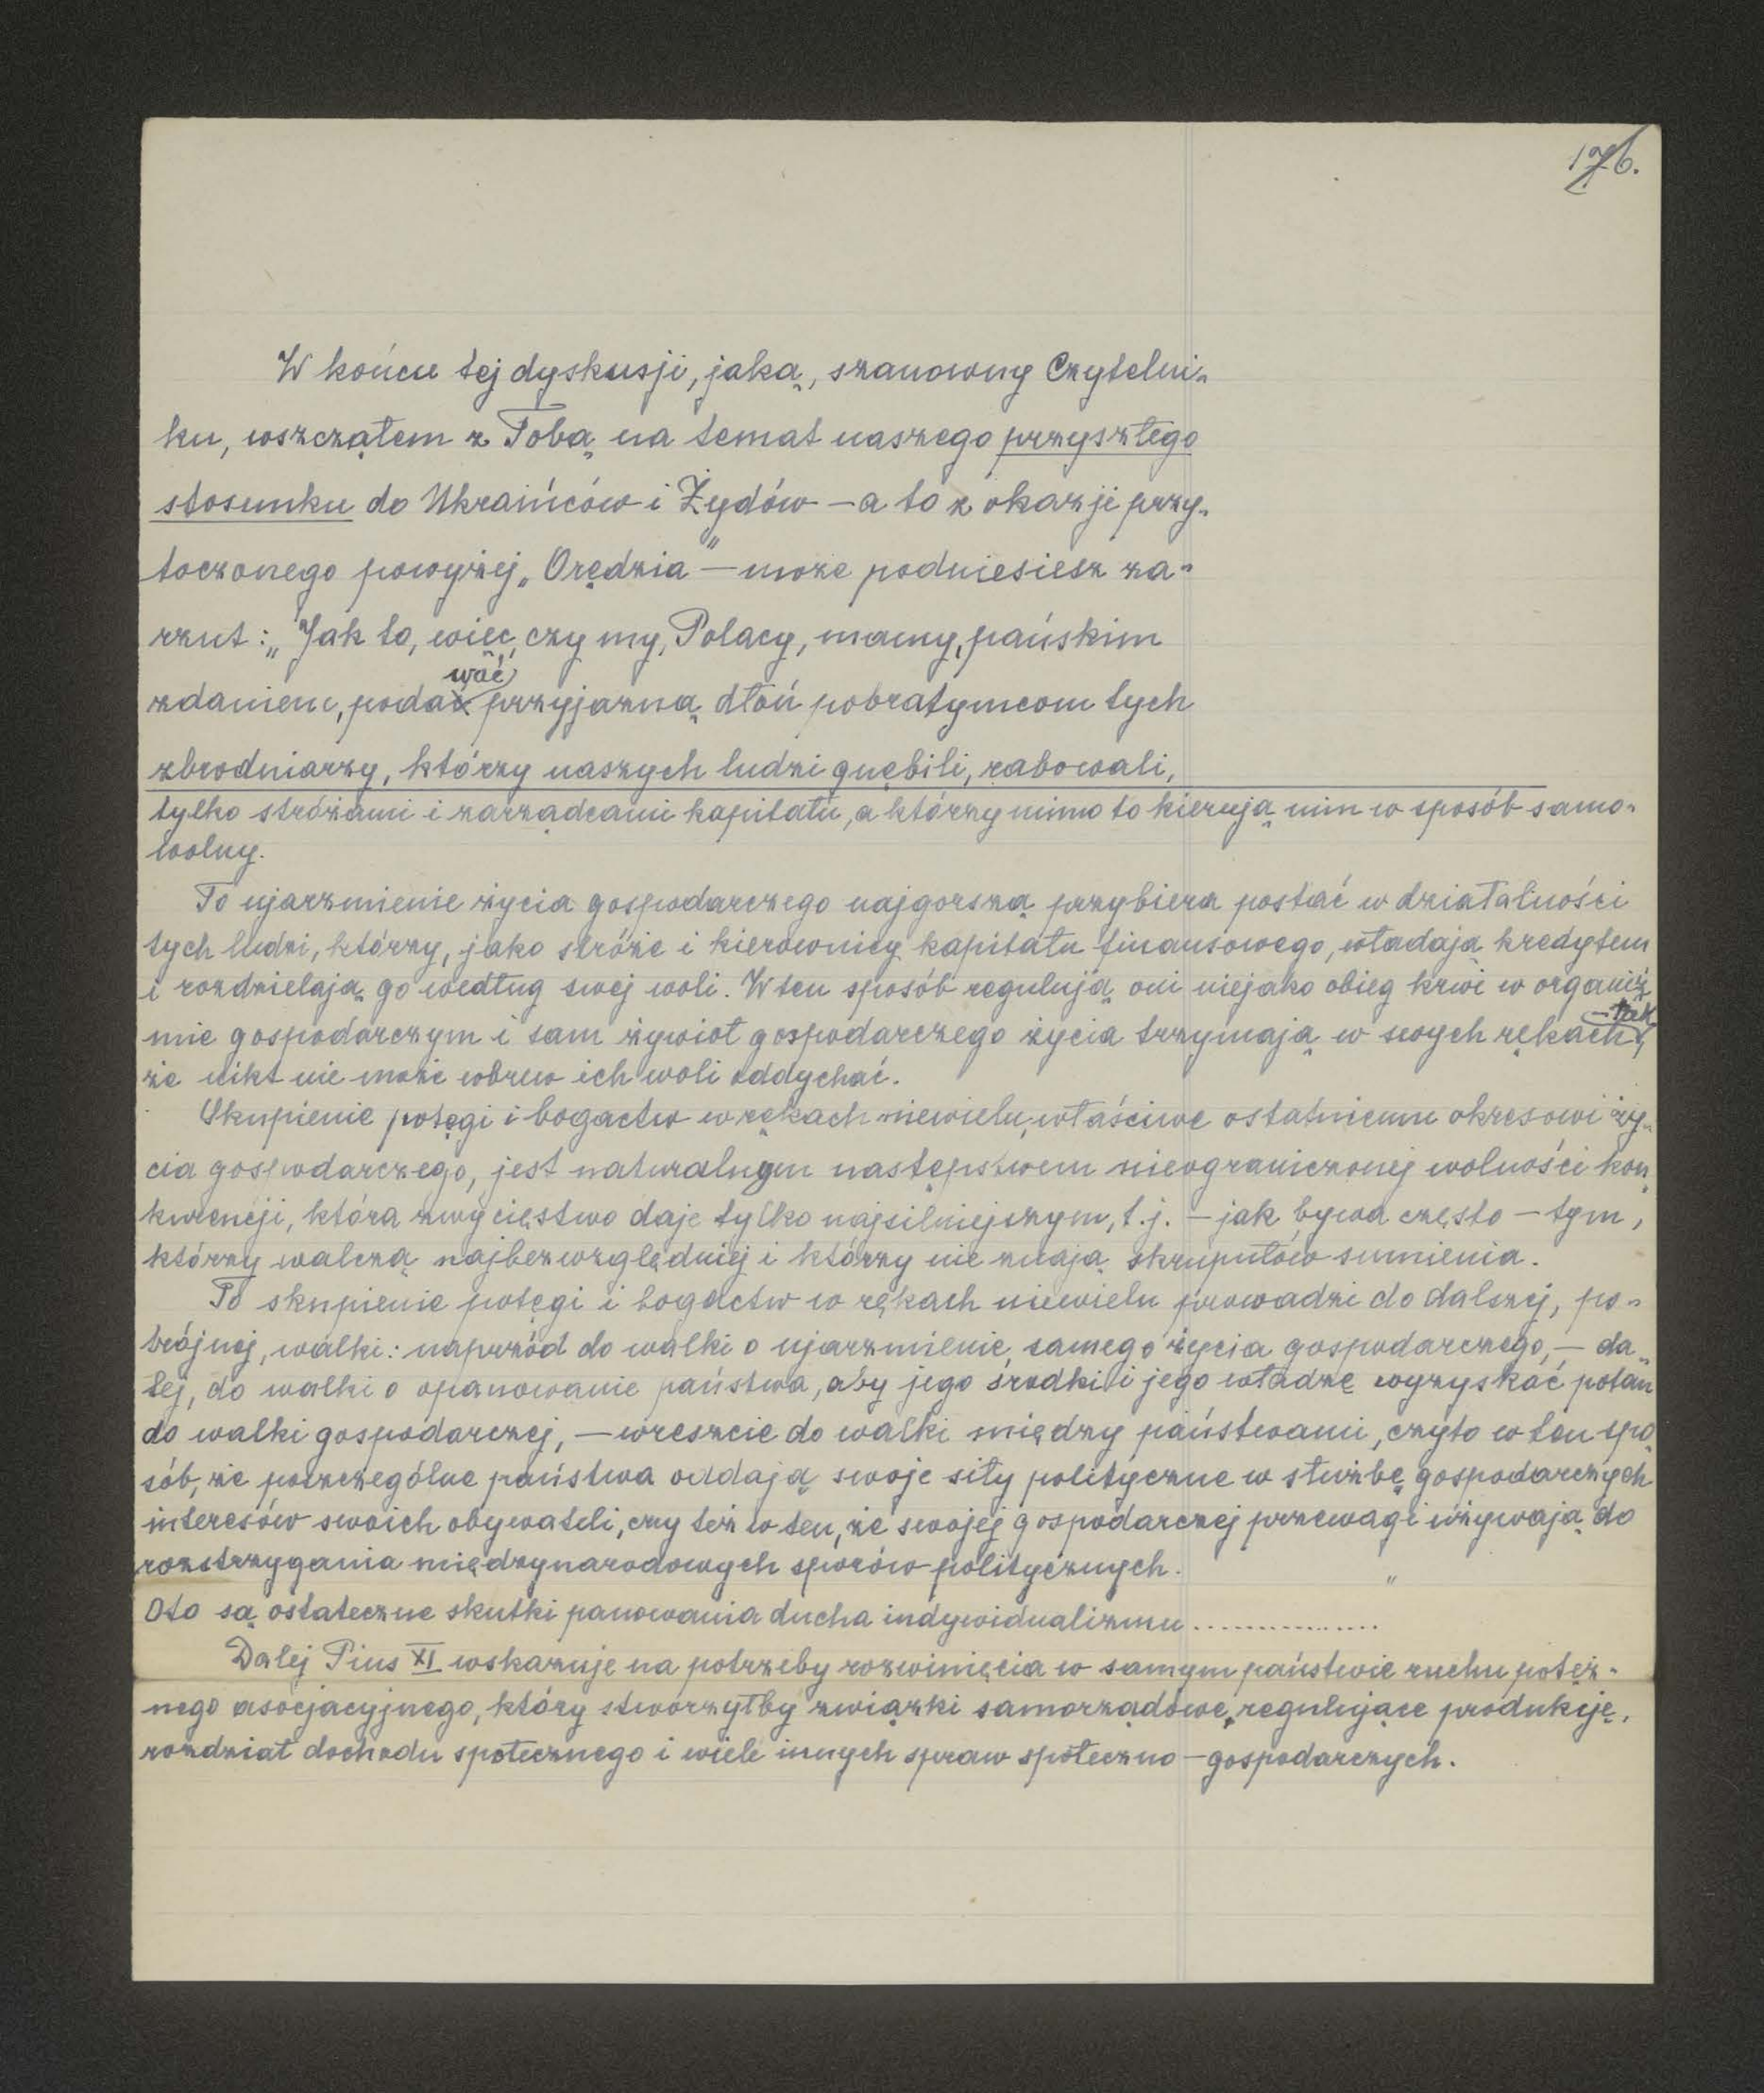 176.
W końcu tej dyskusji, jaką, szanowny Czytelni-
ku, wszcząłem z Tobą na temat naszego przyszłego
stosunku do Ukraińców i Żydów — a to z okazji przy-
toczonego powyżej „Orędzia" — może podniesiesz za-
rzut: „Jak to, więc, czy my, Polacy, mamy, pańskim
wać
zdaniem, podać przyjazną dłoń pobratymcom tych
zbrodniarzy, którzy naszych ludzi gnębili, rabowali,
tylko stróżami i zarządcami kapitału, a którzy mimo to kierują nim w sposób samo-
wolny.
To ujarzmienie życia gospodarczego najgorszą przybiera postać w działalności
tych ludzi, którzy, jako stróże i kierownicy kapitału finansowego, władają kredytem
i rozdzielają go według swej woli. W ten sposób regulują oni niejako obieg krwi w organiz-
- tak
mie gospodarczym i sam żywioł gospodarczego życia trzymają w swych rękach,
że nikt nie może wbrew ich woli oddychać.
Skupienie potęgi i bogactw w rękach niewielu, właściwe ostatniemu okresowi ży-
cia gospodarczego, jest naturalnym następstwem nieograniczonej wolności kon-
kurencji, która zwycięstwo daje tylko najsilniejszym, t.j. — jak bywa często — tym,
którzy walczą najbezwzględniej i którzy nie znają skrupułów sumienia.
To skupienie potęgi i bogactw w rękach niewielu prowadzi do dalszej, po-
trójnej, walki: naprzód do walki o ujarzmienie samego życia gospodarczego, — da-
lej, do walki o opanowanie państwa, aby jego środki i jego władzę wyzyskać potem
do walki gospodarczej, — wreszcie do walki między państwami, czyto w ten spo-
sób, że poszczególne państwa oddają swoje siły polityczne w służbę gospodarczych
interesów swoich obywateli, czy też w ten, że swojej gospodarczej przewagi używają do
rozstrzygania międzynarodowych sporów politycznych. "
Oto są ostateczne skutki panowania ducha indywidualizmu ................
Dalej Pius XI wskazuje na potrzeby rozwinięcia w samym państwie ruchu potęż-
nego asocjacyjnego, który stworzyłby związki samorządowe, regulujące produkcję,
rozdział dochodu społecznego i wiele innych spraw społeczno — gospodarczych.